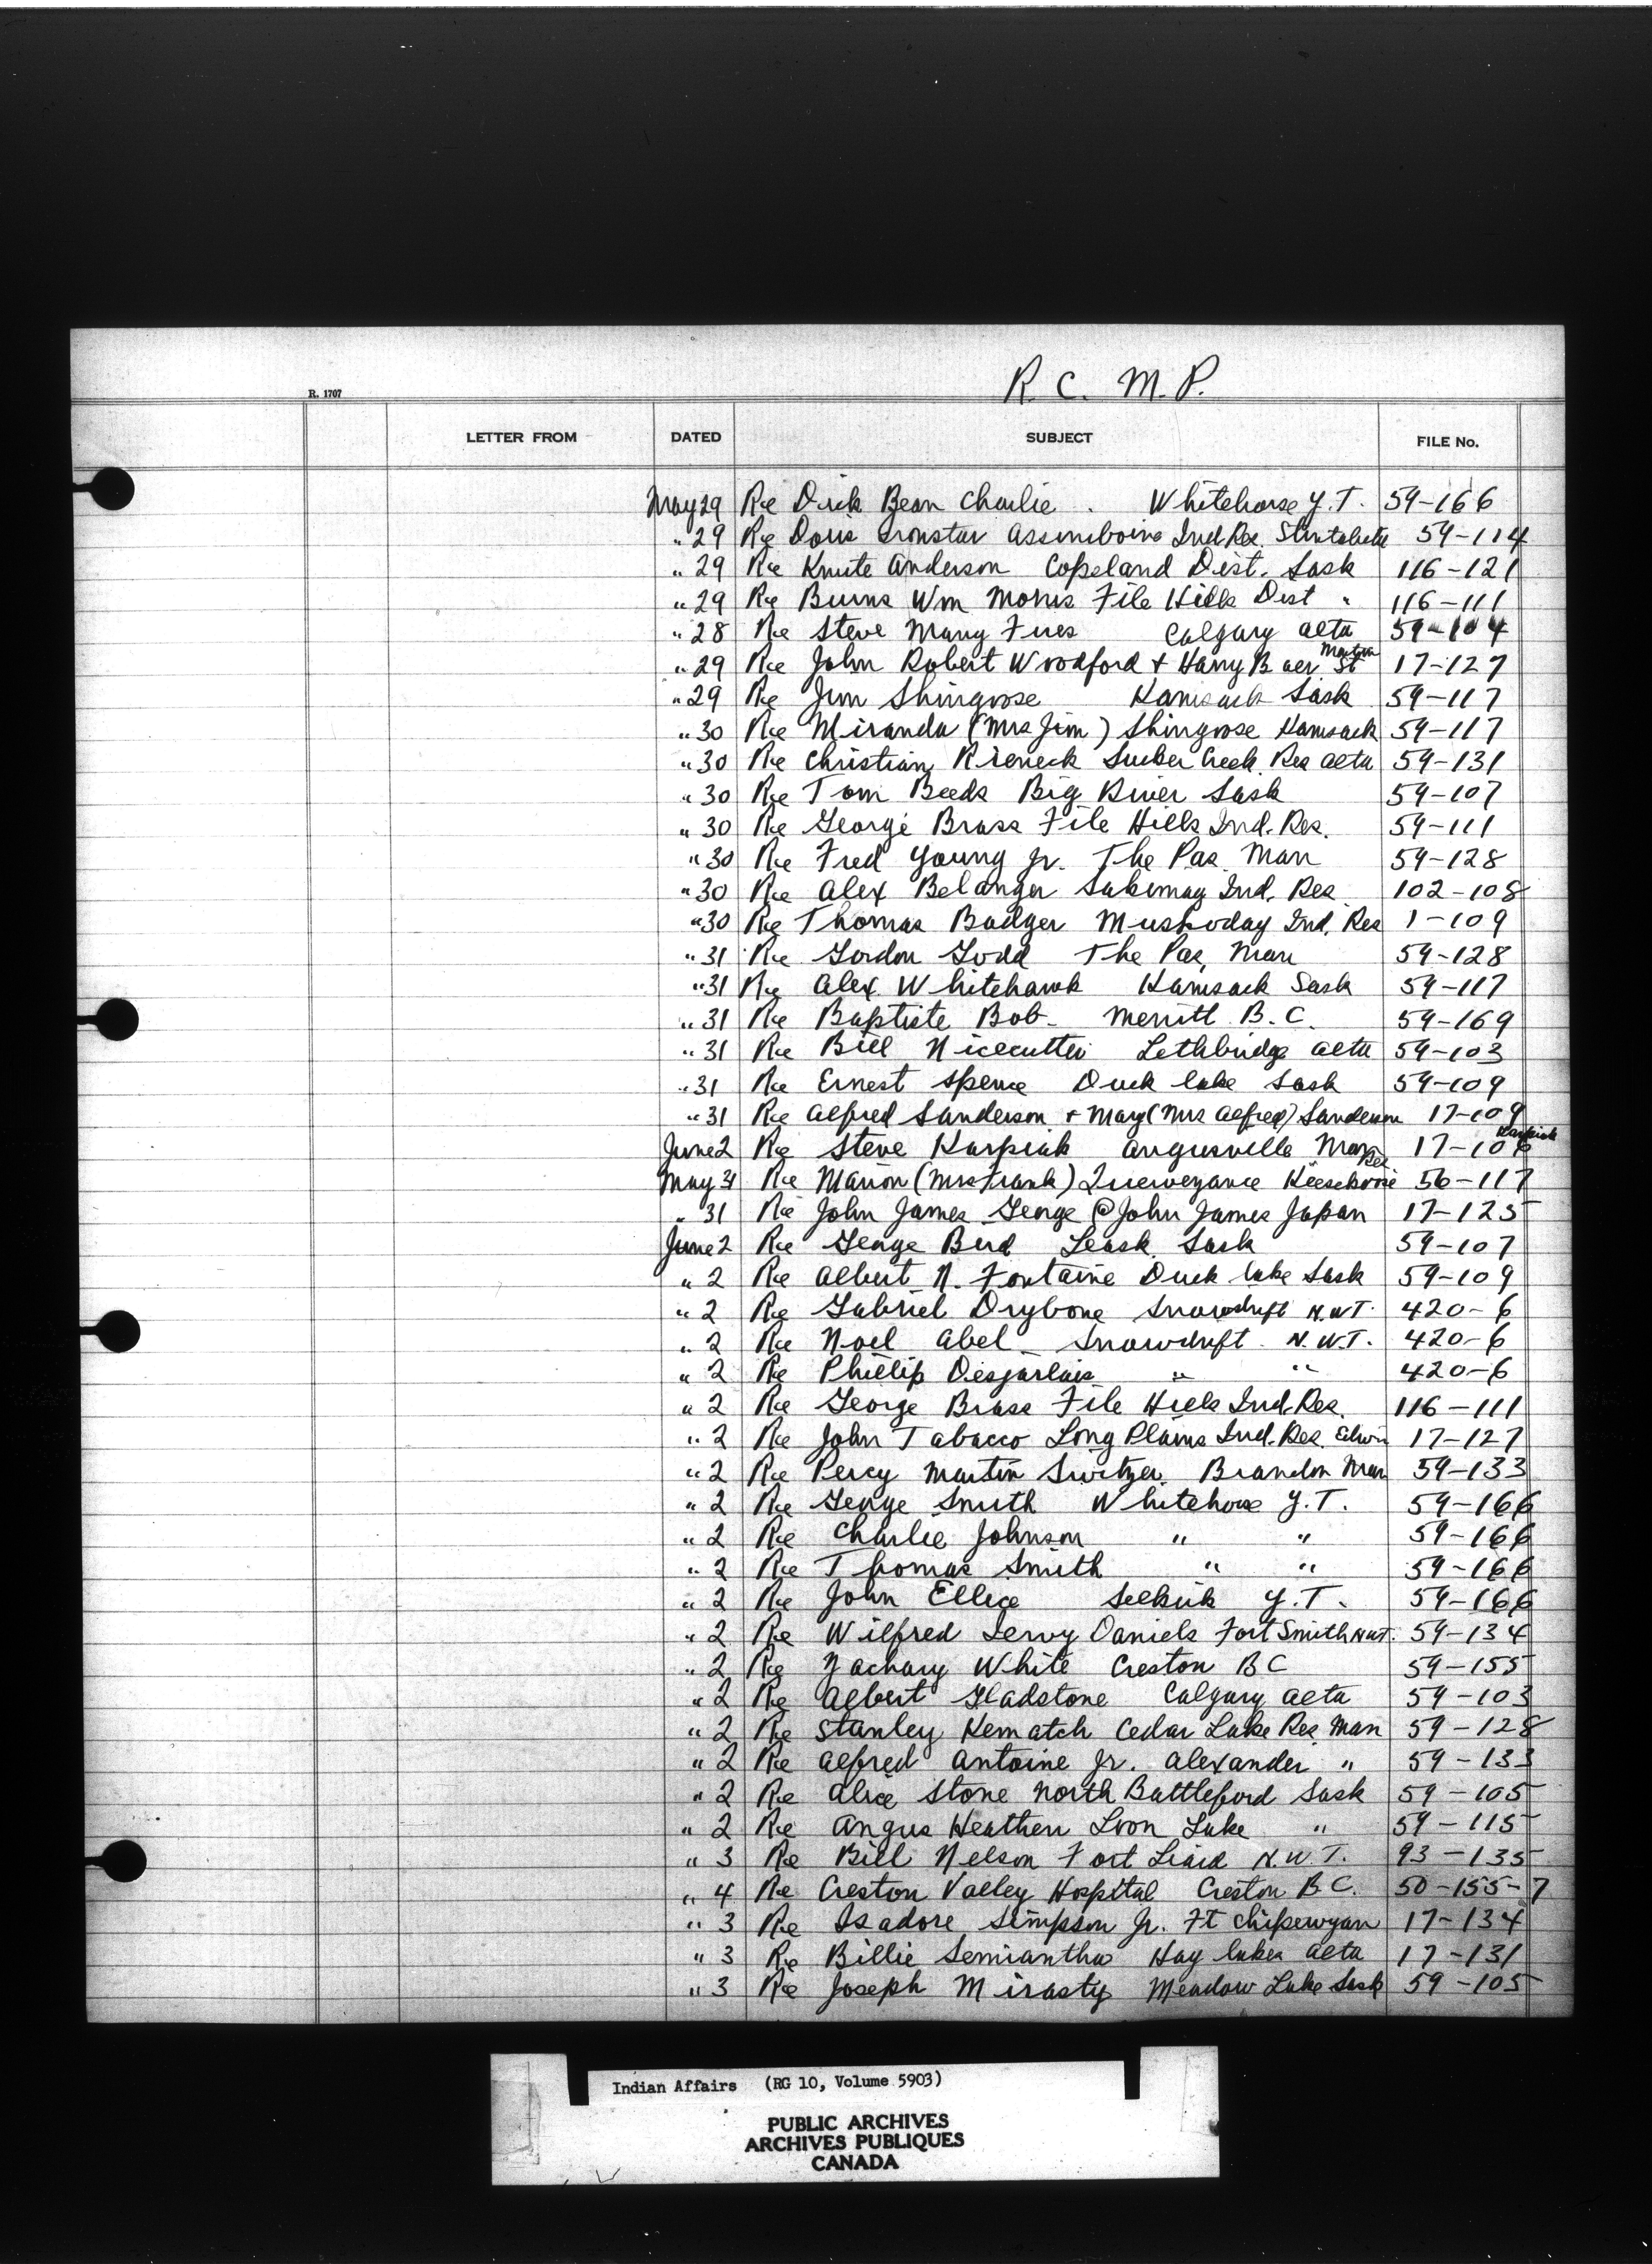 R. C. M. P.
R. 1707
LETTER FROM DATED SUBJECT FILE No.
May 29 Re Dick Bean Charlie . Whitehorse Y.T. 59-166
" 29 Re Doris Ironstar Assiniboine Ind Res. 59-114
" 29 Re Knute Anderson Copeland Dist. Sask 116-121
" 29 Re Burns Wm Morris File Hills Dist " 116-111
" 28 Re Steve Many Fires Calgary Alta 59-104
" 29 Re John Robert Woodford & Harry Baer Martin St 17-127
" 29 Re Jim Shingoose Kamsack Sask 59-117
" 30 Re Miranda (Mrs Jim) Shingoose Kamsack 59-117
" 30 Re Christian Rieneck Sucker Creek Res Alta 59-131
" 30 Re Tom Beeds Big River Sask 59-107
" 30 Re George Brass File Hills Ind. Res. 59-111
" 30 Re Fred Young Jr. The Pas Man 59-128
" 30 Re Alex Belanger Sakimay Ind. Res. 102-108
" 30 Re Thomas Badger Muskoday Ind. Res 1-109
" 31 Re Gordon Todd The Pas, Man 59-128
" 31 Re Alex Whitehawk Kamsack Sask 59-117
" 31 Re Baptiste Bob- Merritt B.C. 59-169
" 31 Re Bill Nicecutter Lethbridge Alta 59-103
" 31 Re Ernest Spence Duck lake Sask 59-109
" 31 Re Alfred Sanderson & Mary (Mrs Alfred) Sanderson 17-109
June 2 Re Steve Karpiak Angusville Man 17-106 Karpiak
May 31 Re Marion (Mrs Frank) Quewezance Keesekoose Res 56-117
" 31 Re John James George @ John James Japan 17-125
June 2 Re George Bird Leask Sask 59-107
" 2 Re Albert N. Fontaine Duck lake Sask 59-109
" 2 Re Gabriel Drybone Snowdrift N.W.T. 420-6
" 2 Re Noel Abel - Snowdrift N.W.T. 420-6
" 2 Re Phillip Desjarlais " " 420-6
" 2 Re George Brass File Hills Ind. Res. 116-111
" 2 Re John Tabacco Long Plains Ind. Res. Edwin 17-127
" 2 Re Percy Martin Switzer Brandon Man 59-133
" 2 Re George Smith Whitehorse Y.T. 59-166
" 2 Re Charlie Johnson " " 59-166
" 2 Re Thomas Smith " " 59-166
" 2 Re John Ellice Selkirk Y.T. 59-166
" 2 Re Wilfred Leroy Daniels Fort Smith NWT. 59-134
" 2 Re Zachary White Creston BC 59-155
" 2 Re Albert Gladstone Calgary Alta 59-103
" 2 Re Stanley Kematch Cedar Lake Res Man 59-128
" 2 Re Alfred Antoine Jr. Alexander " 59-133
" 2 Re Alice Stone North Battleford Sask 59-105
" 2 Re Angus Heathen Loon Lake " 59-115
" 3 Re Bill Nelson Fort Liard N.W.T. 93-135
" 4 Re Creston Valley Hospital Creston B.C. 50-155-7
" 3 Re Isadore Simpson Jr. Ft Chipewyan 17-134
" 3 Re Billie Semiantha Hay lakes Alta 17-131
" 3 Re Joseph Mirasty Meadow Lake Sask 59-105
Indian Affairs (RG 10, Volume 5903)
PUBLIC ARCHIVES
ARCHIVES PUBLIQUES
CANADA